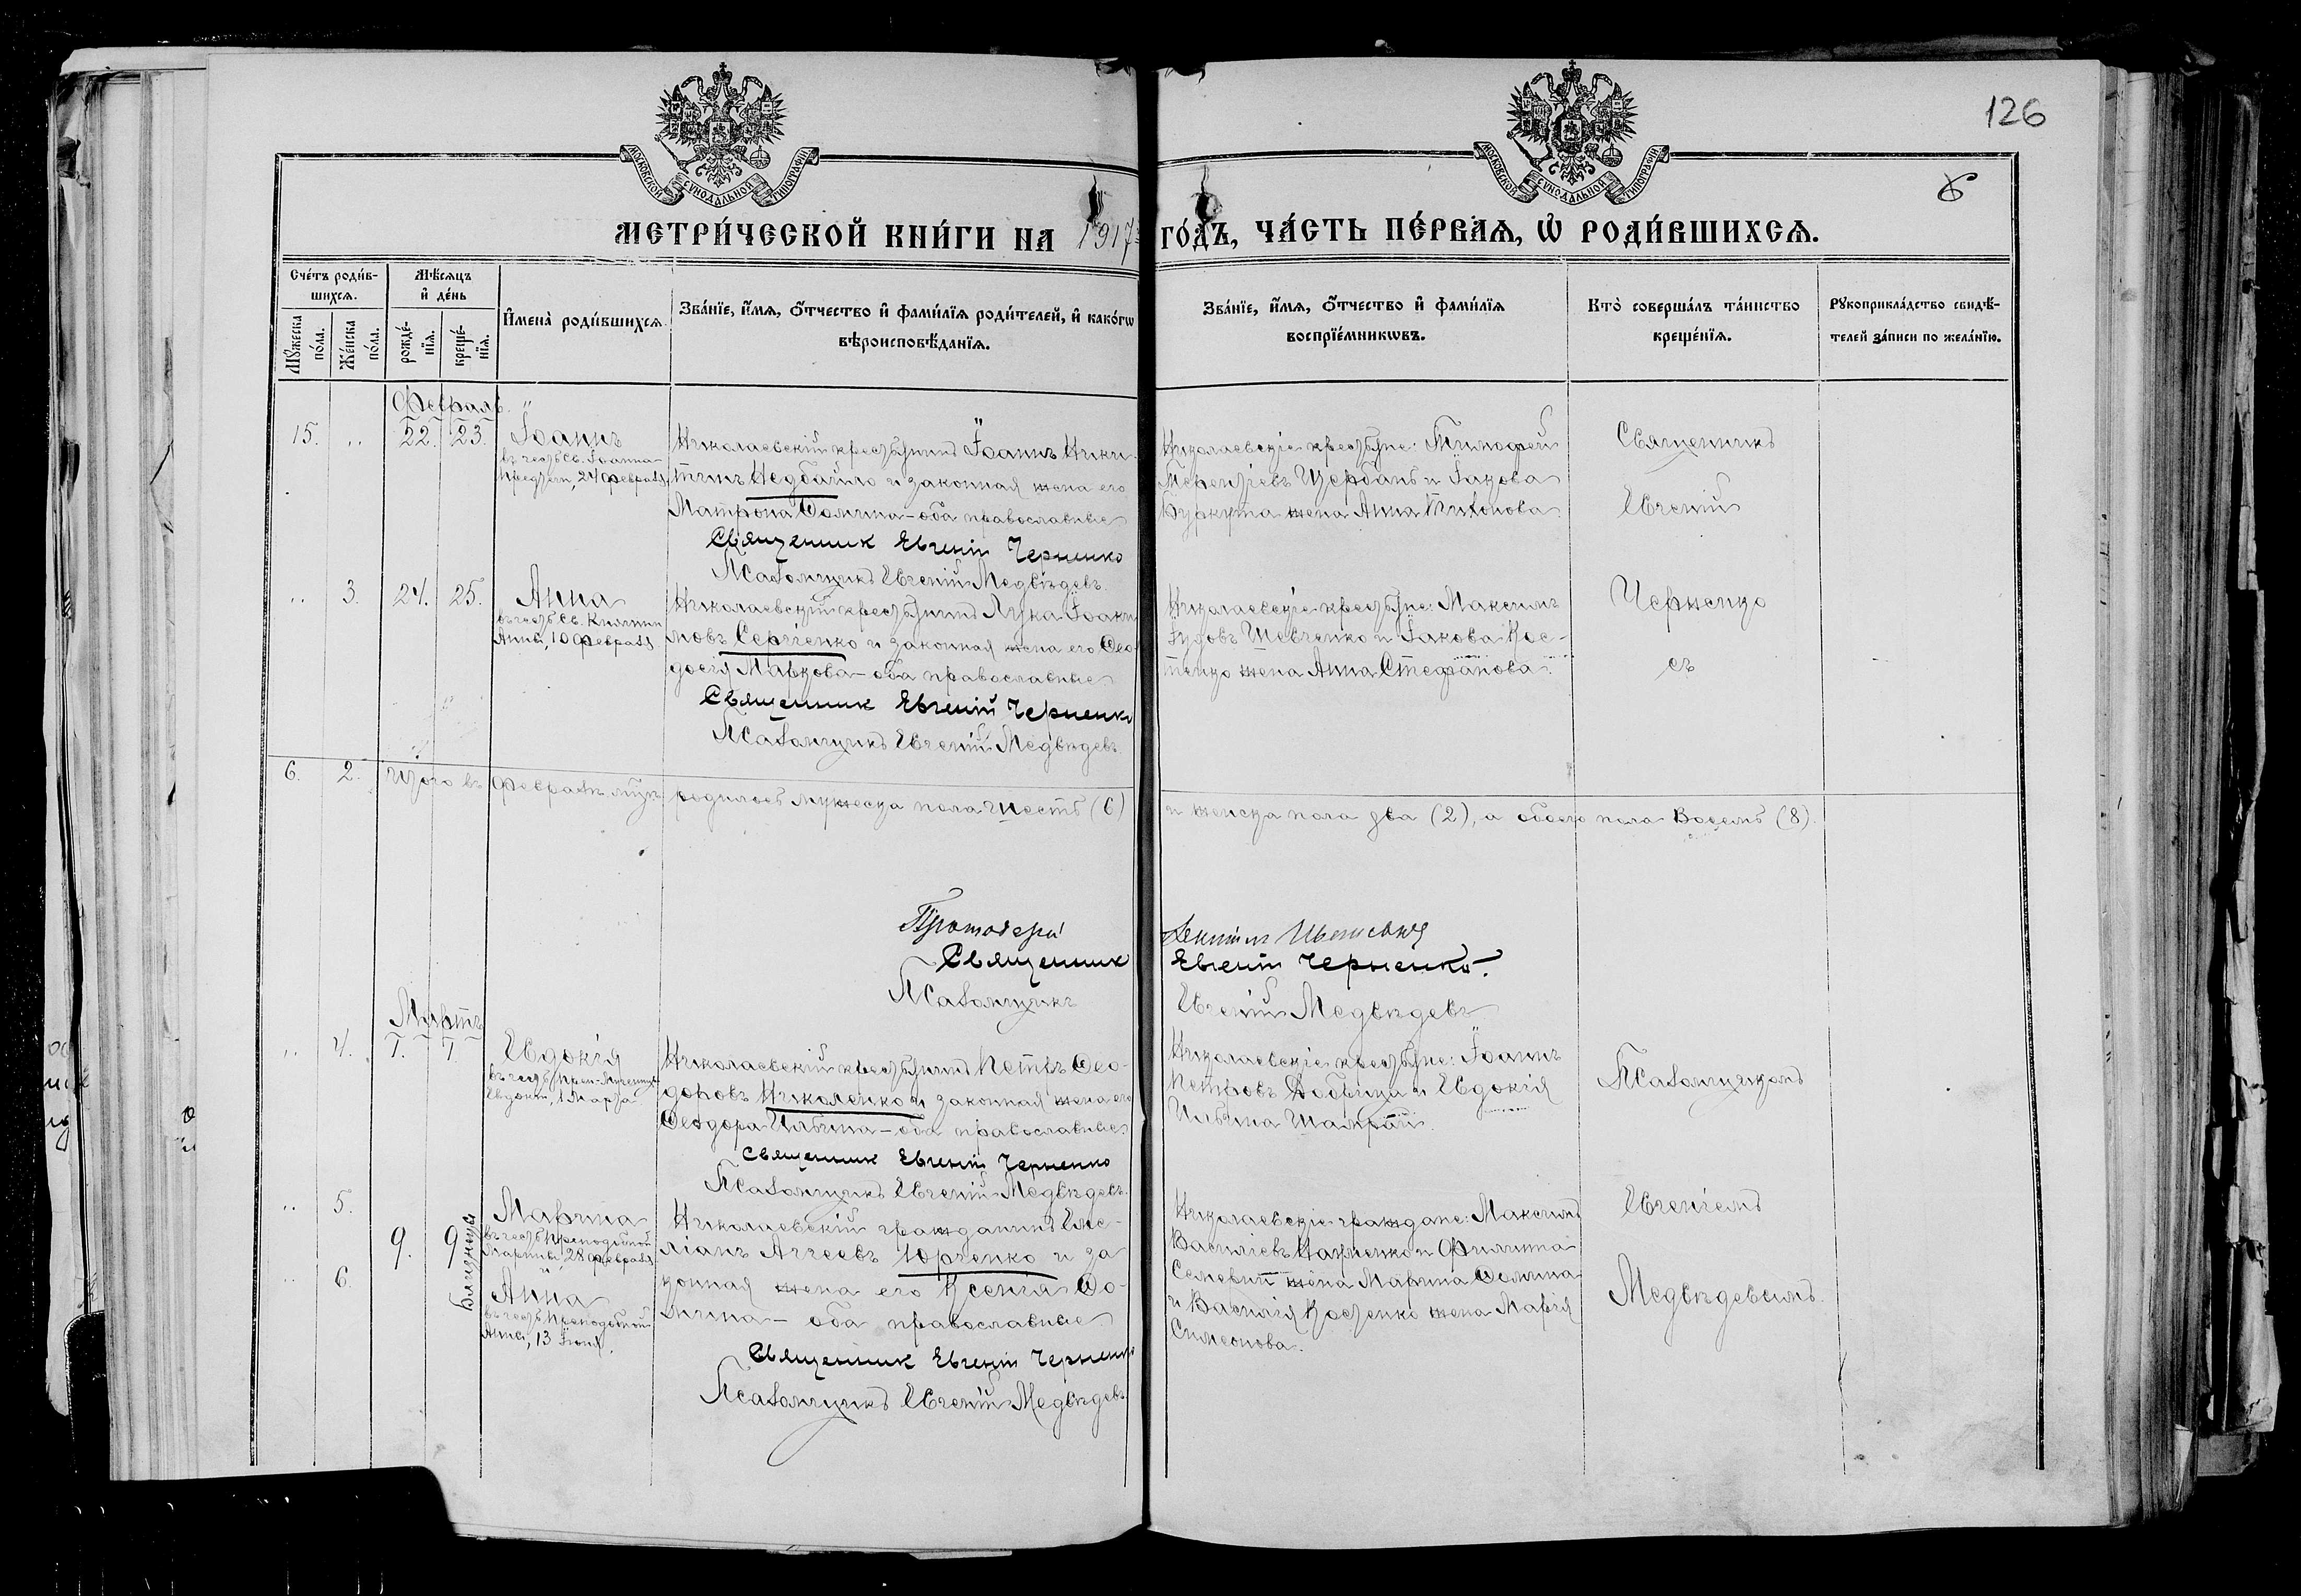 126
6
МОСКОВСКОЙ СУНОДАЛЬНОЙ ТИПОГРАФІИ
МОСКОВСКОЙ СУНОДАЛЬНОЙ ТИПОГРАФІИ
МЕТРИ́ЧЕСКОЙ КНИ́ГИ НА 1917 ГО́ДЪ, ЧА́СТЬ ПЕ́РВАЯ, Ѡ РОДИ́ВШИХСЯ.
Сче́тъ роди́в-
шихся.
Мꙋжеска по́ла.
Же́нска по́ла.
Мѣ́сяцъ
и҆ де́нь
рожде́-
нїя.
креще́-
нїя.
И҆мена̀ роди́вшихся.
Зва́нїе, и҆́мя, ѻ҆́тчество и҆ фами́лїя роди́телей, и҆ како́гѡ
вѣроисповѣ́данїя.
Зва́нїе, и҆́мя, ѻ҆́тчество и҆ фами́лїя
воспрїе́мникѡвъ.
Кто̀ соверша́лъ та́инство
креще́нїя.
Рꙋкоприкла́дство свидѣ́-
телей за́писи по жела́нїю.
Февраль.
15. „ 22. 23. Іоаннъ
въ честь Св. Іоанна
Предтечи, 24 февраля
Николаевскій крестьянинъ Іоаннъ Ники-
тинъ Недбайло и законная жена его
Матрона Ѳомина – оба православные
Священник Евгеній Черненко
Псаломщикъ Евгеній Медвѣдевъ.
Николаевскіе крестьяне: Тимофей
Терентіевъ Щербань и Іакова
Буркута жена Анна Титонова.
Священникъ
Евгеній
„ 3. 24. 25. Анна
въ честь Св. Княгини
Анны, 10 февраля
Николаевскій крестьянинъ Лука Іоаки-
мовъ Сергіенко и законная жена его Ѳео-
досія Маркова – оба православные.
Священник Евгеній Черненко
Псаломщикъ Евгеній Медвѣдевъ.
Николаевскіе крестьяне: Максимъ
Іудовъ Шевченко и Іакова Кос-
тенко жена Анна Стефанова.
Черненко
съ
6. 2. Итого въ февралѣ м-цѣ родилось мужеска пола шесть (6) и женска пола два (2), а обоего пола восемь (8).
Протоіерей
Священник Евгеній Черненко.
Псаломщикъ Евгеній Медвѣдевъ
Мартъ
„ 4. 1. 1. Евдокія
въ честь Преп.-Мученицы
Евдокіи, 1 Марта
Николаевскій крестьянинъ Петръ Ѳео-
доровъ Николенко и законная жена его
Ѳеодора Ильина – оба православные.
Священник Евгеній Черненко
Псаломщикъ Евгеній Медвѣдевъ.
Николаевскіе крестьяне: Іоаннъ
Петровъ и Евдокія
Ильина Шамрай.
Псаломщикомъ
„ 5. 9. 9. близнецы
Марина
въ честь Преподобной
Марины, 28 февраля
и
„ 6. Анна
въ честь Преподобной
Анны, 13 Іюня.
Николаевскій гражданинъ Еме-
ліанъ Аггеевъ Юрченко и за-
конная жена его Ксенія Ѳо-
мина – оба православные
Священник Евгеній Черненко
Псаломщикъ Евгеній Медвѣдевъ
Николаевскіе граждане: Максимъ
Василіевъ и Филиппа
жена Марина Ѳомина
и Василія Костенко жена Марія
Симеонова.
Евгеніемъ
Медвѣдевымъ.